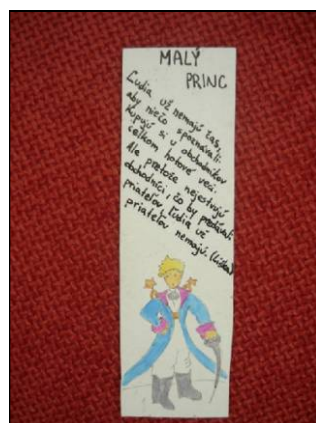 MALÝ
PRINC
Ľudia už nemajú čas,
aby niečo spoznávali.
Kupujú si u obchodníkov
celkom hotové veci.
Ale pretože nejestvujú
obchodníci, čo by predávali
priateľov ľudia už
priateľov nemajú. (Líška)